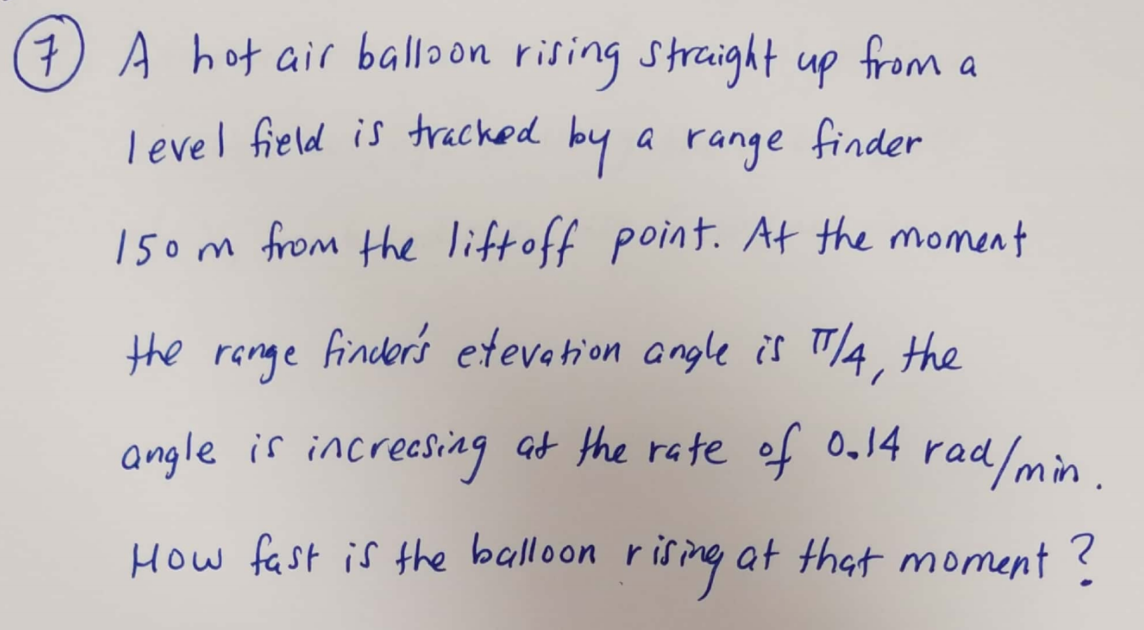 7 A hot air balloon rising straight up from a
level field is tracked by a range finder
150 m from the liftoff point. At the moment
the range finder's etevation angle is π/4, the
angle is increasing at the rate of 0.14 rad/min.
How fast is the balloon rising at that moment ?